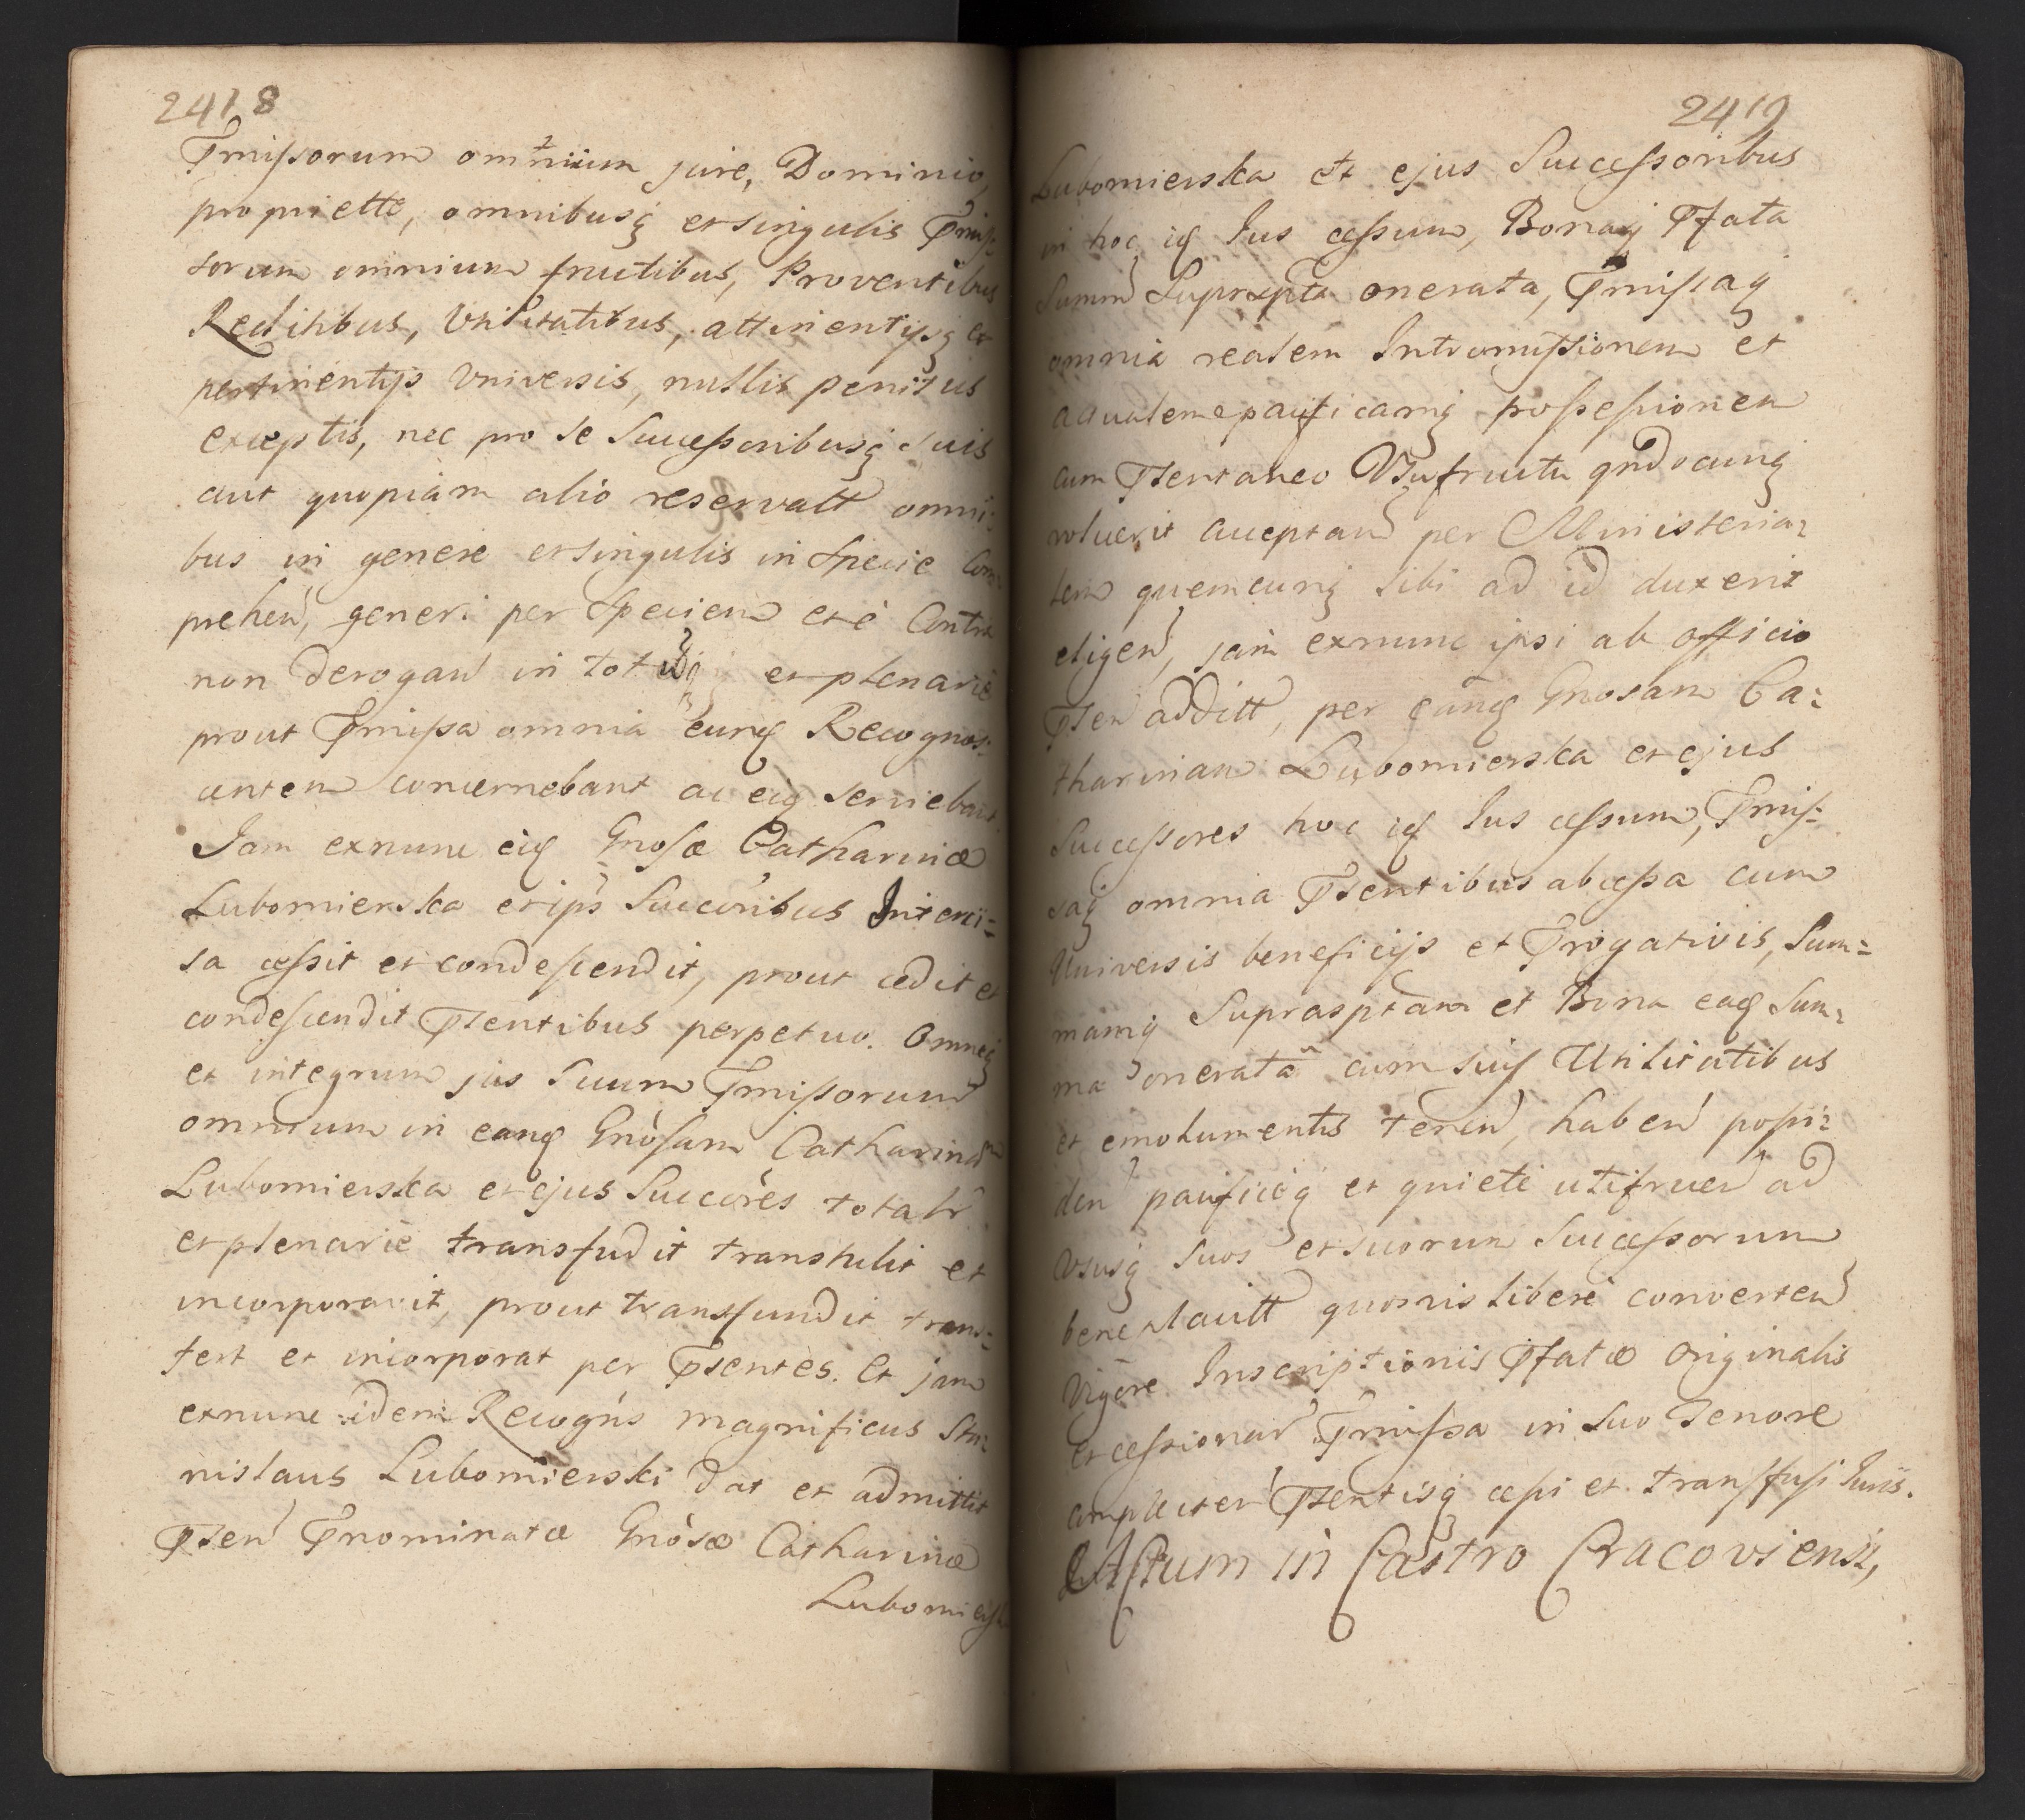 2418
Pmissorum omniium jure, Dominio,
propriette, omnibusq et singulis Pmis=
sorum omnium fructibus, Proventibus
Reditibus, Vtilitatibus, attinentijsq et
pertinentijs Vniversis, nullis penitus
exceptis, nec pro se Successoribusq suis
aut quopiam alio reservatt omni:
bus in genere et singulis in Specie Com
prehen, generi per Speciem et è Contra
non derogan in tot et plenariè
prout Pmissa omnia eunq Recognos:
centem concernebant ac eiq serviebant.
Jam exnunc eiq Gnosæ Catharinæ
Lubomierska et ips Succoribus Interci=
sa cessit et condescendit, prout cedit et
condescendit Psentibus perpetuo. Omneq
et integrum jus Suum Pmissorum
omnium in eanq Gnosam Catharinam
Lubomierska et ejus Succores totalr
et plenariè transfudit transtulit et
incorporavit, prout transfundit trans=
fert et incorporat per Psentes. Et jam
exnunc idem Recogns magnificus Sta:
nislaus Lubomierski dat et admittit
Psen Pnominatæ Gnosæ Catharinæ
Lubomiers
2419
Lubomierska et ejus Successoribus
in hoc iq Jus cessum, Bonaq Pfata
Summ Suprascpta onerata, Pmissaq
omnia realem Intromissionem et
actualem pacificamq possessionem
cum Psentaneo Vsufructu qndocunq
voluerit acceptan per Ministeria:
lem quemcunq sibi ad id duxerit
eligen, jam exnunc ipsi ab officio
Psen additt, per eanq Gnosam Ca:
tharinam Lubomierska et ejus
Successores hoc iq Jus cessum, Pmis:
saq omnia Psentibus abcessa cum
Universis beneficijs et Prògativis, Sum=
mamq Suprasptam et Bona eaq Sum:
ma onerata cum suis Utilitatibus
et emolumentis tenen, haben possi:
den pacificèq et quietè utifruen ad
Vsusq Suos et suorum Successorum
beneplacitt quovis liberè converten
Vigore Inscriptionis Pfatæ Originalis
et cessionar Pmissa in suo Tenore
amplecten Psentisq cessi et transfusi Juris.
Actum in Castro Cracoviensi,